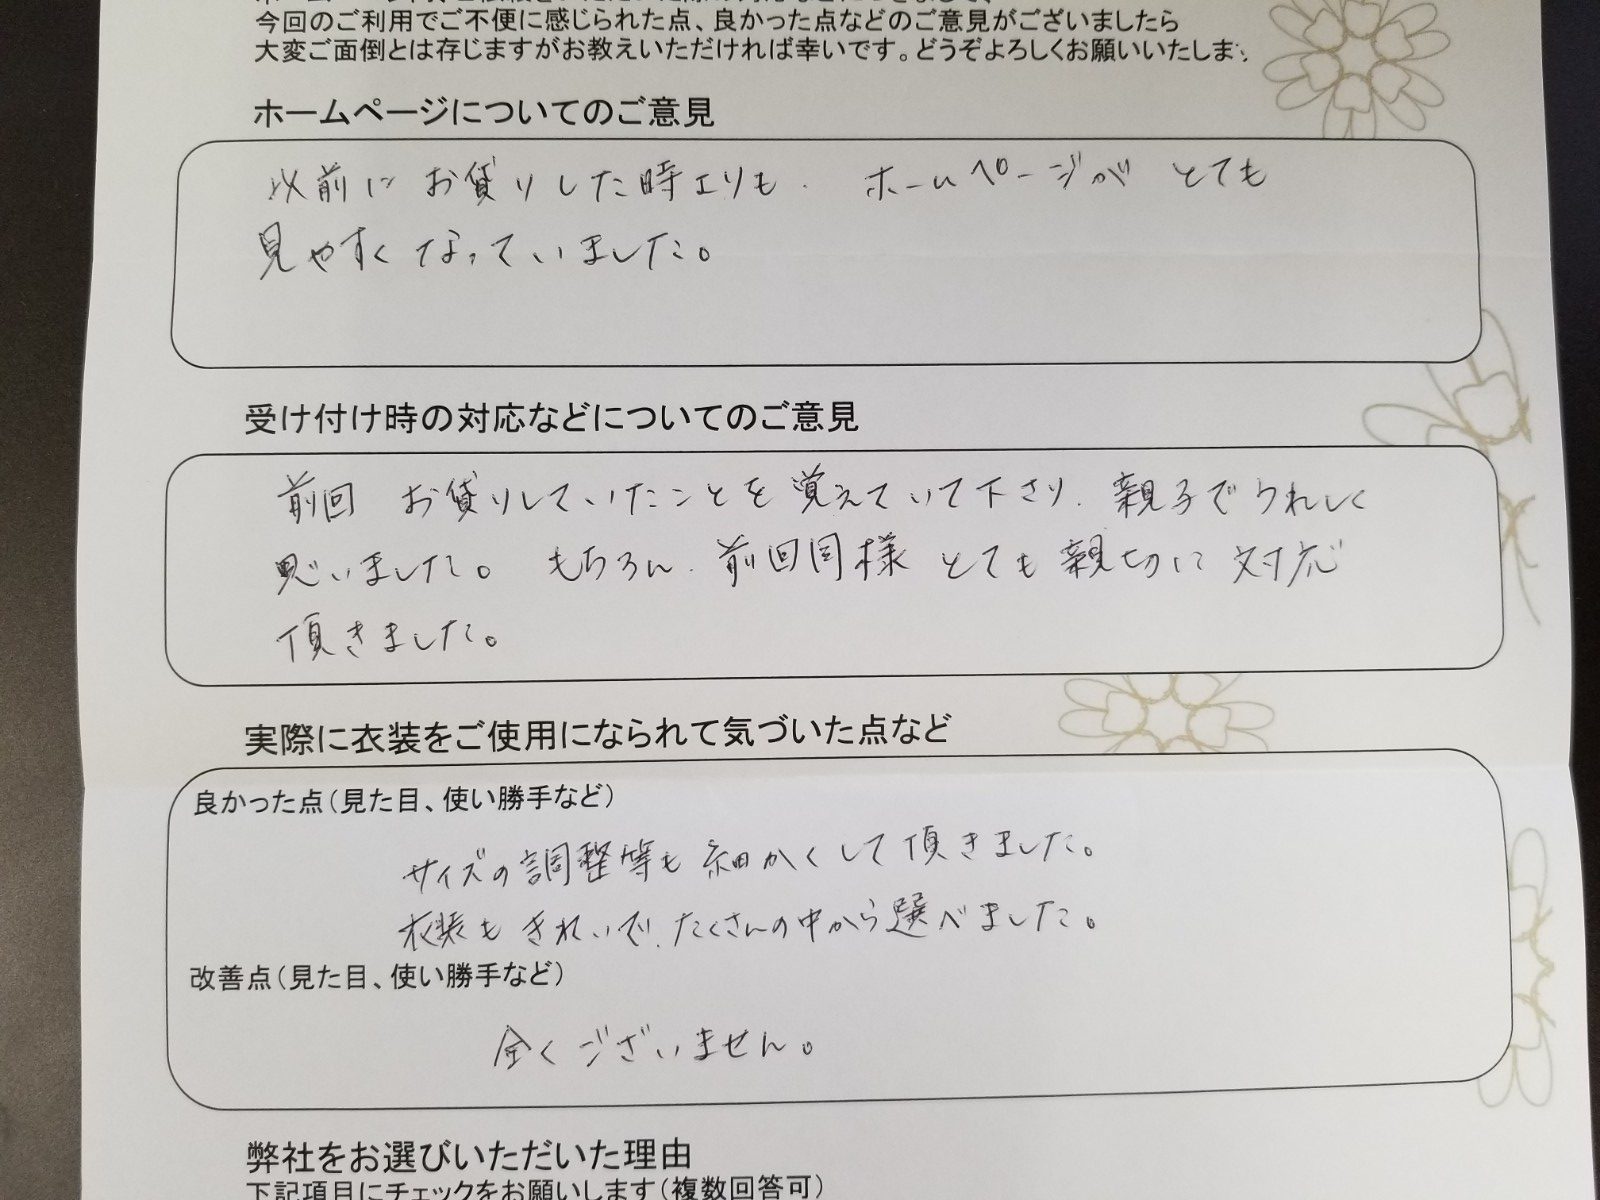 今回のご利用でご不便に感じられた点、良かった点などのご意見がございましたら
大変ご面倒とは存じますがお教えいただければ幸いです。どうぞよろしくお願いいたします
ホームページについてのご意見
以前に お貸りした時よりも、 ホームページが とても
見やすくなっていました。
受け付け時の対応などについてのご意見
前回 お貸りしていたことを覚えていて下さり、親子でうれしく
思いました。 もちろん、前回同様 とても親切に 対応
頂きました。
実際に衣装をご使用になられて気づいた点など
良かった点（見た目、使い勝手など）
サイズの調整等も細かくして頂きました。
衣装も きれいで、たくさんの中から選べました。
改善点（見た目、使い勝手など）
全くございません。
弊社をお選びいただいた理由
下記項目にチェックをお願いします（複数回答可）